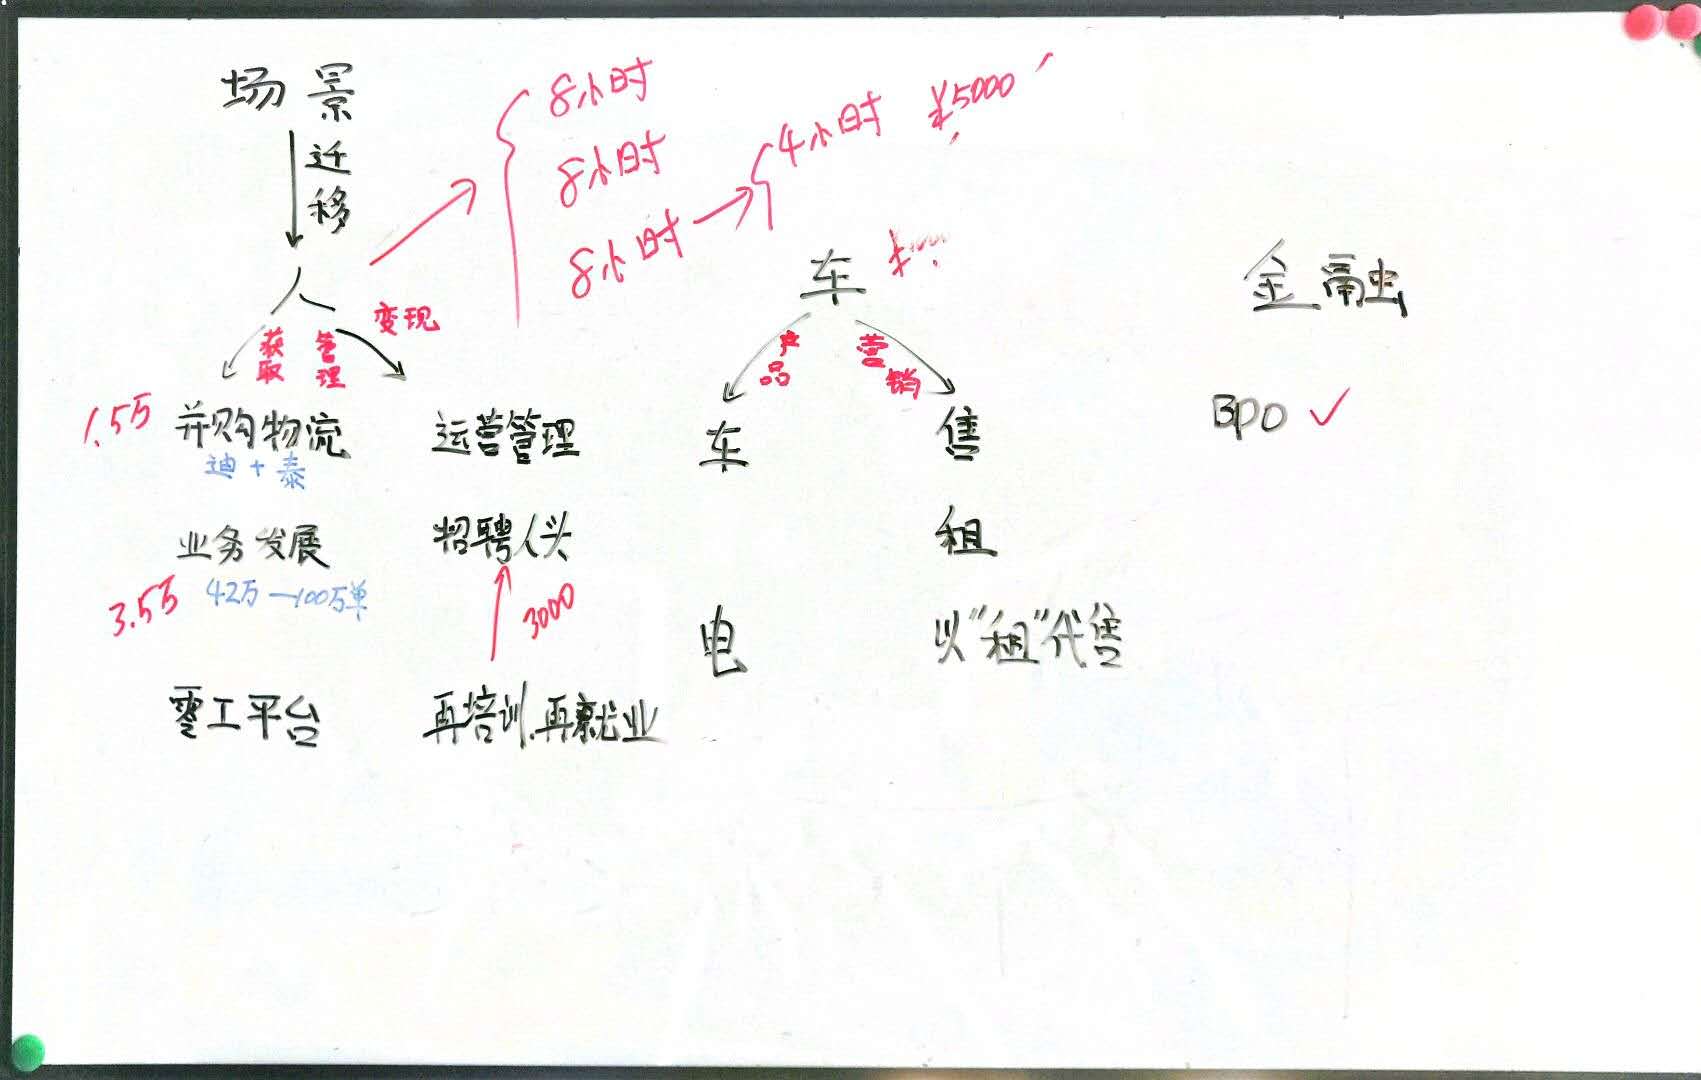 场景
迁移
人
8小时
8小时
8小时
4小时 ¥5000
变现
获取
管理
1.5万 并购物流
迪+泰
业务发展
3.5万 42万—100万单
零工平台
运营管理
招聘人头
3000
再培训.再就业
车
产品
营销
车
电
售
租
以“租”代售
金融
BPO ✓